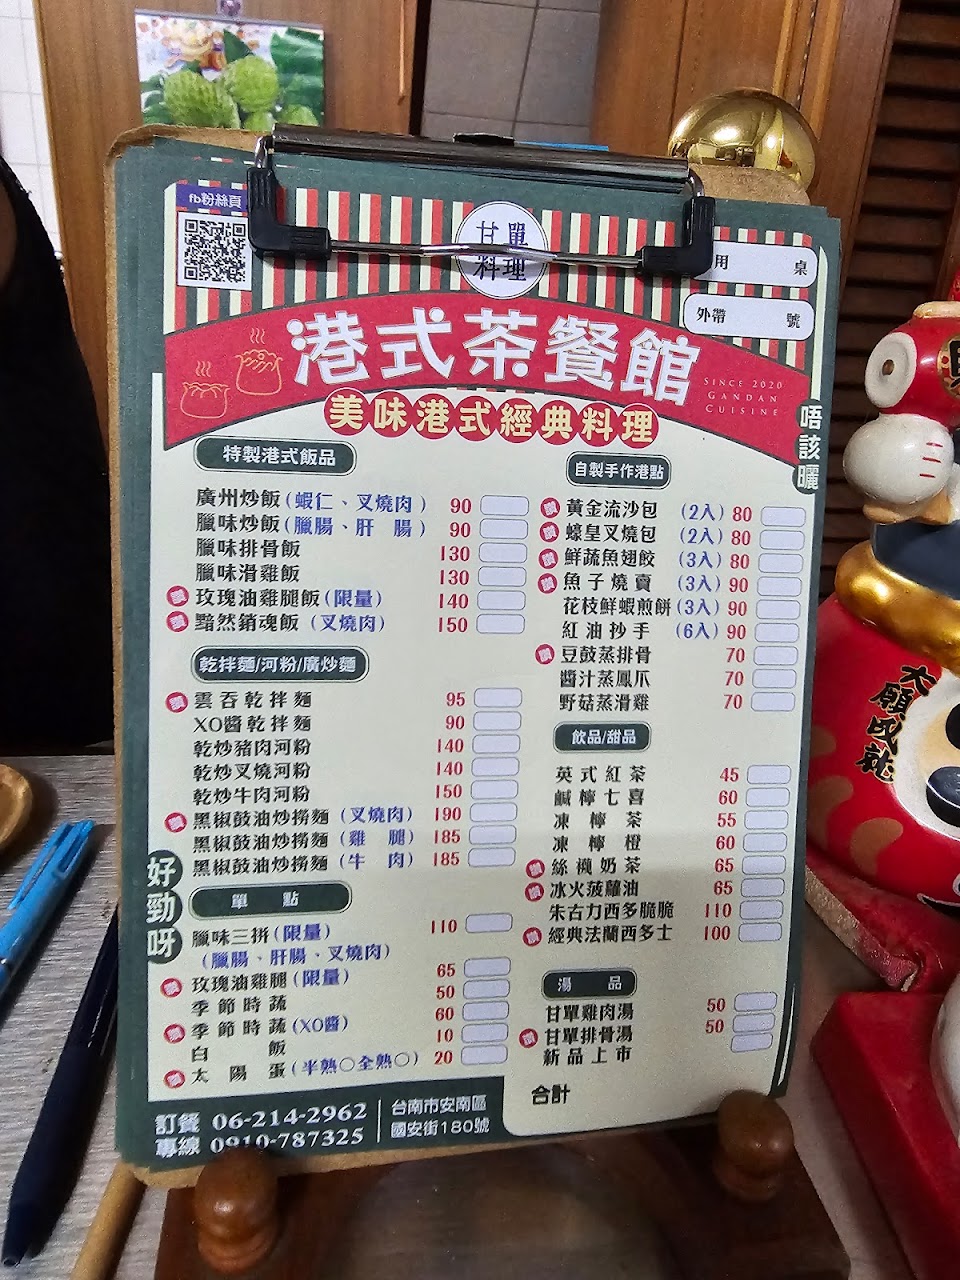 fb粉絲頁
甘單
料理
用 桌
外帶 號
港式茶餐館
SINCE 2020
GANDAN
CUISINE
美味港式經典料理
唔該曬
特製港式飯品
廣州炒飯(蝦仁、叉燒肉) 90
臘味炒飯(臘腸、肝腸) 90
臘味排骨飯 130
臘味滑雞飯 130
讚 玫瑰油雞腿飯(限量) 140
讚 黯然銷魂飯(叉燒肉) 150
乾拌麵/河粉/廣炒麵
讚 雲吞乾拌麵 95
XO醬乾拌麵 90
乾炒豬肉河粉 140
乾炒叉燒河粉 140
乾炒牛肉河粉 150
讚 黑椒鼓油炒撈麵(叉燒肉) 190
黑椒鼓油炒撈麵(雞腿) 185
黑椒鼓油炒撈麵(牛肉) 185
好勁呀
單點
臘味三拼(限量) 110
(臘腸、肝腸、叉燒肉)
讚 玫瑰油雞腿(限量) 65
季節時蔬 50
讚 季節時蔬(XO醬) 60
白飯 10
讚 太陽蛋(半熟○全熟○) 20
自製手作港點
讚 黃金流沙包(2入) 80
讚 蠔皇叉燒包(2入) 80
讚 鮮蔬魚翅餃(3入) 80
讚 魚子燒賣(3入) 90
花枝鮮蝦煎餅(3入) 90
紅油抄手(6入) 90
讚 豆鼓蒸排骨 70
醬汁蒸鳳爪 70
野菇蒸滑雞 70
飲品/甜品
英式紅茶 45
鹹檸七喜 60
凍檸茶 55
凍檸橙 60
讚 絲襪奶茶 65
讚 冰火菠蘿油 65
朱古力西多脆脆 110
讚 經典法蘭西多士 100
湯品
甘單雞肉湯 50
讚 甘單排骨湯 50
新品上市
合計
訂餐 06-214-2962
專線 0910-787325
台南市安南區
國安街180號
大願成就